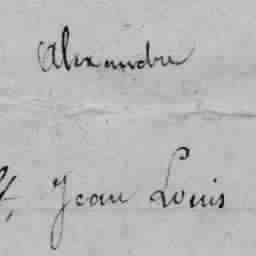 Alexandre
Jean Louis